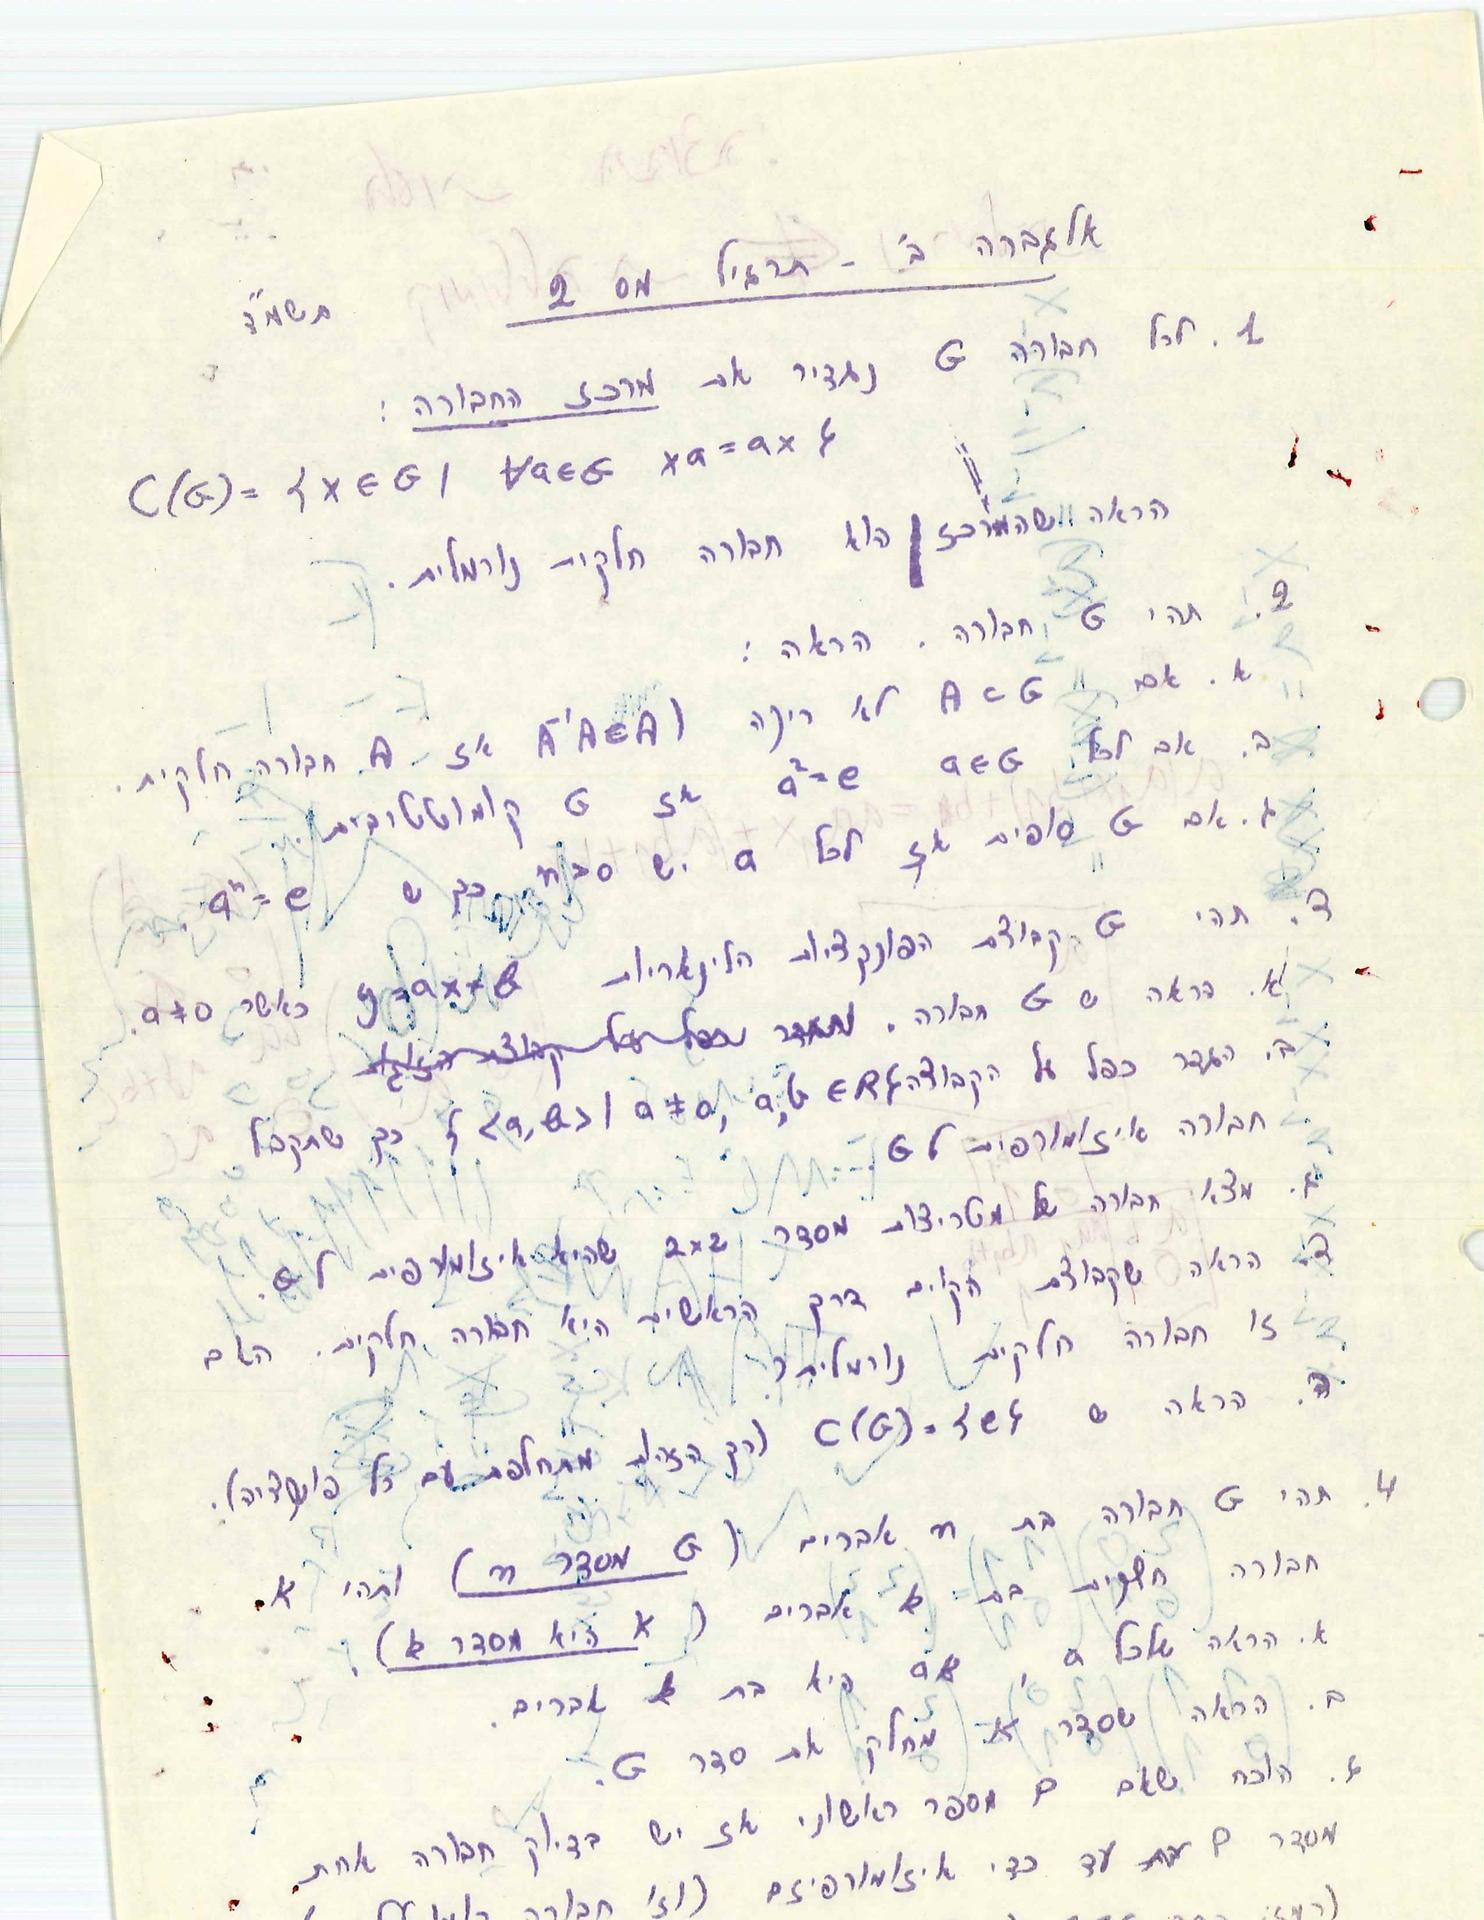 אלגברה ב' - תרגיל מס 2 תשמ"ד
1. לכל חבורה G נגדיר את מרכז החבורה :
C(G) = { x ∈ G | ∀a∈G xa = ax }
הראה שהמרכז הוא חבורה חלקית נורמלית.
2. תהי G חבורה. הראה :
א. אם A ⊂ G לא ריקה ו A⁻¹A ⊂ A אז A חבורה חלקית.
ב. אם לכל a∈G a² = e אז G קומוטטיבית.
ג. אם G סופית אז לכל a יש n כך ש aⁿ = e.
תהי G קבוצת הפונקציות הלינאריות y = ax + b כאשר a ≠ 0.
א. הראה ש G חבורה.
ב. הגדר כפל על הקבוצה { <a,b> | a ≠ 0, a,b ∈ R } כך שתקבל
חבורה איזומורפית ל G.
ג. מצא חבורה של מטריצות מסדר 2x2 שהיא איזומורפית ל G.
ד. הראה שקבוצת הקוים דרך הראשית היא חבורה חלקית. האם
זו חבורה חלקית נורמלית?
ה. הראה ש C(G) = {e} (רק הזהות מתחלפת עם כל פונקציה).
4. תהי G חבורה בת n אברים (G מסדר n) ותהי K
חבורה חלקית בת k אברים (K היא מסדר k).
א. הראה שלכל a, Ka היא בת k אברים.
ב. הראה שסדר K מחלק את סדר G.
ג. הוכח שאם p מספר ראשוני אז יש בדיוק חבורה אחת
מסדר p עד כדי איזומורפיזם (וזו חבורה